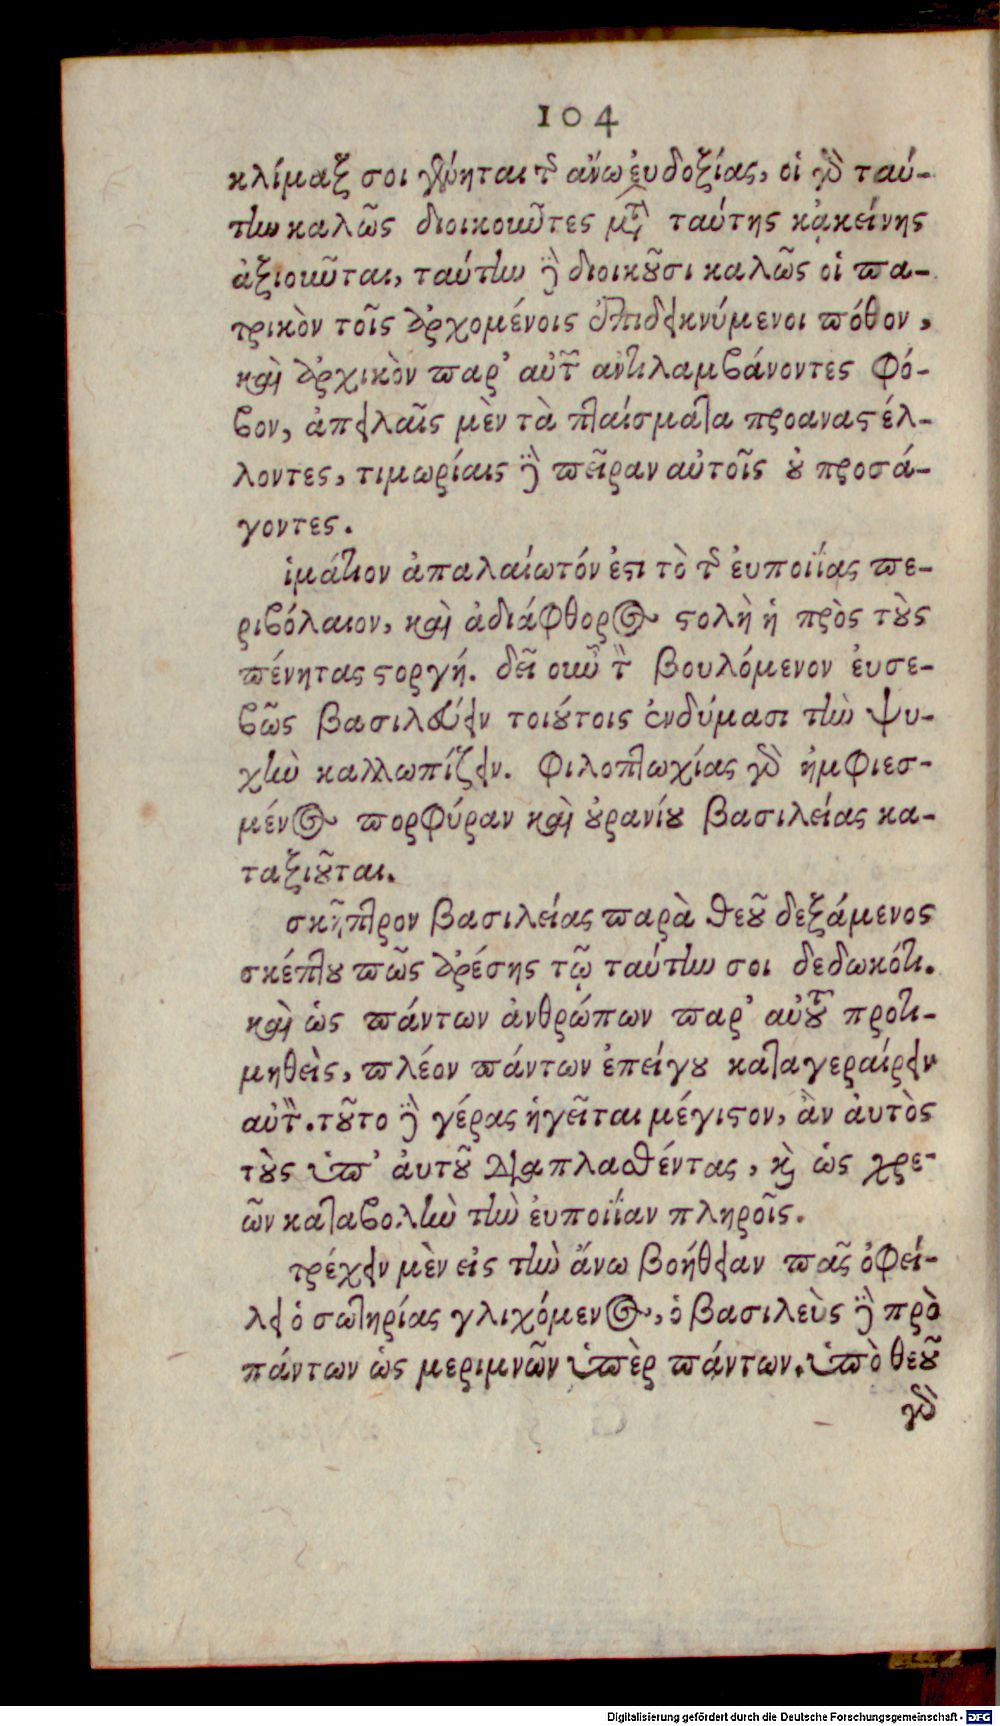 104
κλίμαξ σοι γένηται τῆς ἄνω ἐυδοξίας, οἱ γὰρ ταύ-
την καλῶς διοικοιωῦτες μετὰ ταύτης κᾀκείνης
ἀξιοιωῦται, ταύτην δὲ διοικοῦσι καλῶς οἱ πα-
τρικὸν τοῖς ἀρχομένοις ἐπιδεικνύμενοι πόθον,
καὶ ἀρχικὸν παρ' αὐτῶν ἀντιλαμβάνοντες φό-
βον, ἀπειλαῖς μὲν τὰ πταίσματα προαναστέλ-
λοντες, τιμωρίαις δὲ πεῖραν αὐτοῖς οὐ προσά-
γοντες.
ἱμάτιον ἀπαλαίωτόν ἐστι τὸ τῆς ἐυποιΐας πε-
ριβόλαιον, καὶ ἀδιάφθορος στολὴ ἡ πρὸς τοὺς
πένητας στοργή. δεῖ οιωῦ τὸν βουλόμενον ἐυσε-
βῶς βασιλεύειν τοιούτοις ἐνδύμασι τὴν ψυ-
χὴν καλλωπίζειν. φιλοπτωχίας γὰρ ἠμφιεσ-
μένος πορφύραν καὶ οὐρανίου βασιλείας κα-
ταξιοῦται.
σκῆπτρον βασιλείας παρὰ θεοῦ δεξάμενος
σκέπτου πῶς ἀρέσῃς τῷ ταύτην σοι δεδωκότι.
καὶ ὡς πάντων ἀνθρώπων παρ' αὐτοῦ προτι-
μηθεὶς, πλέον πάντων ἐπείγου καταγεραίρειν
αὐτόν. τοῦτο δὲ γέρας ἡγεῖται μέγιστον, ἂν ἀυτὸς
τοὺς ὑπ' ἀυτοῦ διαπλασθέντας, καὶ ὡς χρε-
ῶν καταβολὴν τὴν ἐυποιΐαν πληροῖς.
τρέχειν μὲν εἰς τὴν ἄνω βοήθειαν πᾶς ὀφεί-
λει ὁ σωτηρίας γλιχόμενος, ὁ βασιλεὺς δὲ πρὸ
πάντων ὡς μεριμνῶν ὑπὲρ πάντων. ὑπὸ θεοῦ
γὰρ
Digitalisierung gefördert durch die Deutsche Forschungsgemeinschaft - DFG